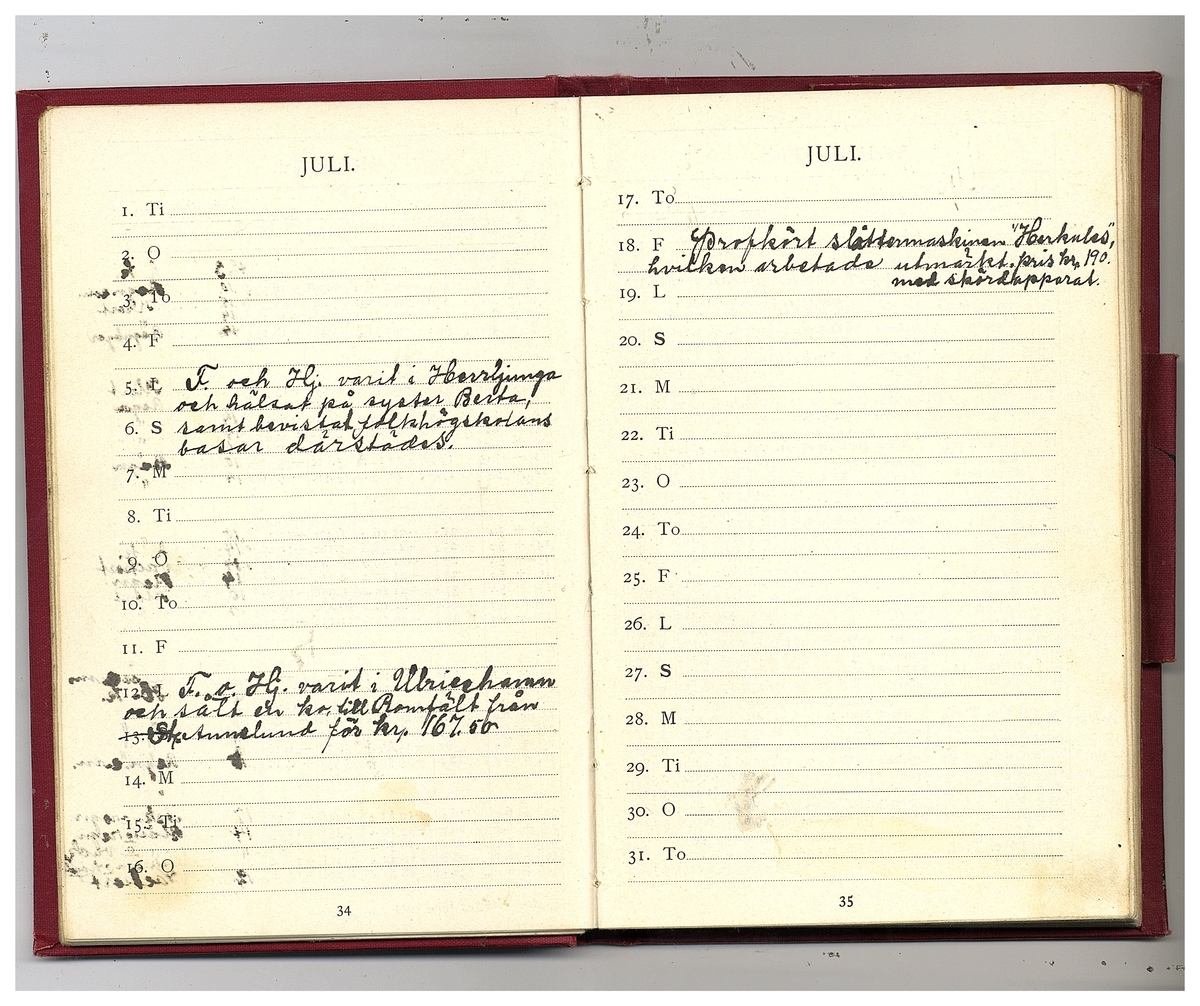 JULI.
1. Ti
2. O
3. To
4. F
5. L F. och Hj. varit i Herrljunga
och hälsat på syster Berta,
6. S samt bevistat folkhögskolans
basar därstädes.
7. M
8. Ti
9. O
10. To
11. F
12. L F. o. Hj. varit i Ulricehamn
och sålt en ko till Romfält från
13. S Annelund för kr. 167.50
14. M
15. Ti
16. O
34
JULI.
17. To
18. F Profkört slåttermaskinen "Herkules",
hvilken arbetade utmärkt. pris kr. 190.
med skördapparat.
19. L
20. S
21. M
22. Ti
23. O
24. To
25. F
26. L
27. S
28. M
29. Ti
30. O
31. To
35